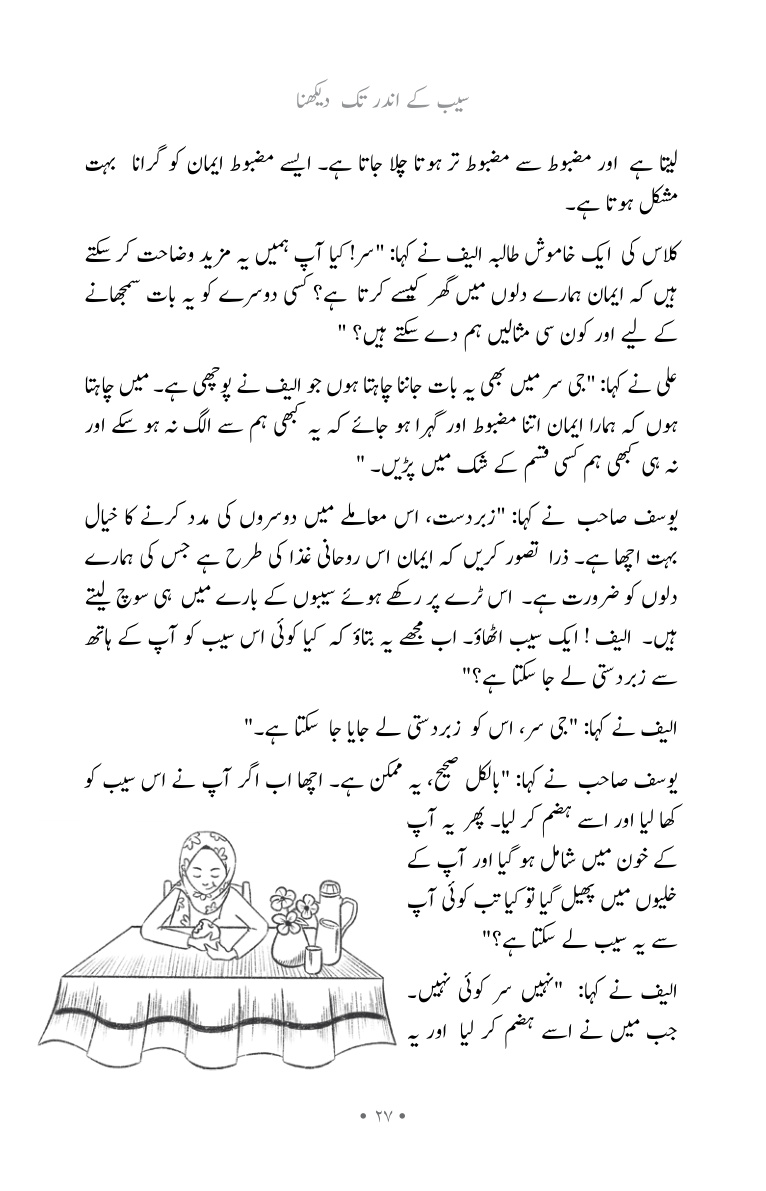 سیب کے اندر تک دیکھنا
لیتا ہے اور مضبوط سے مضبوط تر ہوتا چلا جاتا ہے۔ ایسے مضبوط ایمان کو گرانا بہت
مشکل ہوتا ہے۔
کلاس کی ایک خاموش طالبہ الیف نے کہا: "سر! کیا آپ ہمیں یہ مزید وضاحت کر سکتے
ہیں کہ ایمان ہمارے دلوں میں گھر کیسے کرتا ہے؟ کسی دوسرے کو یہ بات سمجھانے
کے لیے اور کون سی مثالیں ہم دے سکتے ہیں؟ "
علی نے کہا: "جی سر میں بھی یہ بات جاننا چاہتا ہوں جو الیف نے پوچھی ہے۔ میں چاہتا
ہوں کہ ہمارا ایمان اتنا مضبوط اور گہرا ہو جائے کہ یہ کبھی ہم سے الگ نہ ہو سکے اور
نہ ہی کبھی ہم کسی قسم کے شک میں پڑیں۔ "
یوسف صاحب نے کہا: "زبردست، اس معاملے میں دوسروں کی مدد کرنے کا خیال
بہت اچھا ہے۔ ذرا تصور کریں کہ ایمان اس روحانی غذا کی طرح ہے جس کی ہمارے
دلوں کو ضرورت ہے۔ اس ٹرے پر رکھے ہوئے سیبوں کے بارے میں ہی سوچ لیتے
ہیں۔ الیف ! ایک سیب اٹھاؤ۔ اب مجھے یہ بتاؤ کہ کیا کوئی اس سیب کو آپ کے ہاتھ
سے زبردستی لے جا سکتا ہے؟"
الیف نے کہا: "جی سر، اس کو زبردستی لے جایا جا سکتا ہے۔"
یوسف صاحب نے کہا: "بالکل صحیح، یہ ممکن ہے۔ اچھا اب اگر آپ نے اس سیب کو
کھا لیا اور اسے ہضم کر لیا۔ پھر یہ آپ
کے خون میں شامل ہو گیا اور آپ کے
خلیوں میں پھیل گیا تو کیا تب کوئی آپ
سے یہ سیب لے سکتا ہے؟"
الیف نے کہا: "نہیں سر کوئی نہیں۔
جب میں نے اسے ہضم کر لیا اور یہ
• ۲۷ •